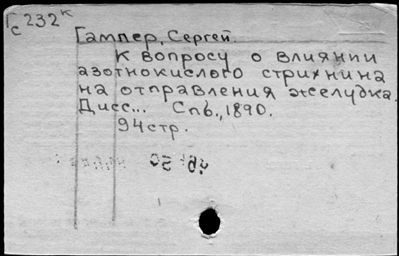 Гс 232к
Гампер, Сергей.
К вопросу о влиянии
азотнокислого стрихнина
на отправления желудка.
Дисс... Спб., 1890.
94стр.